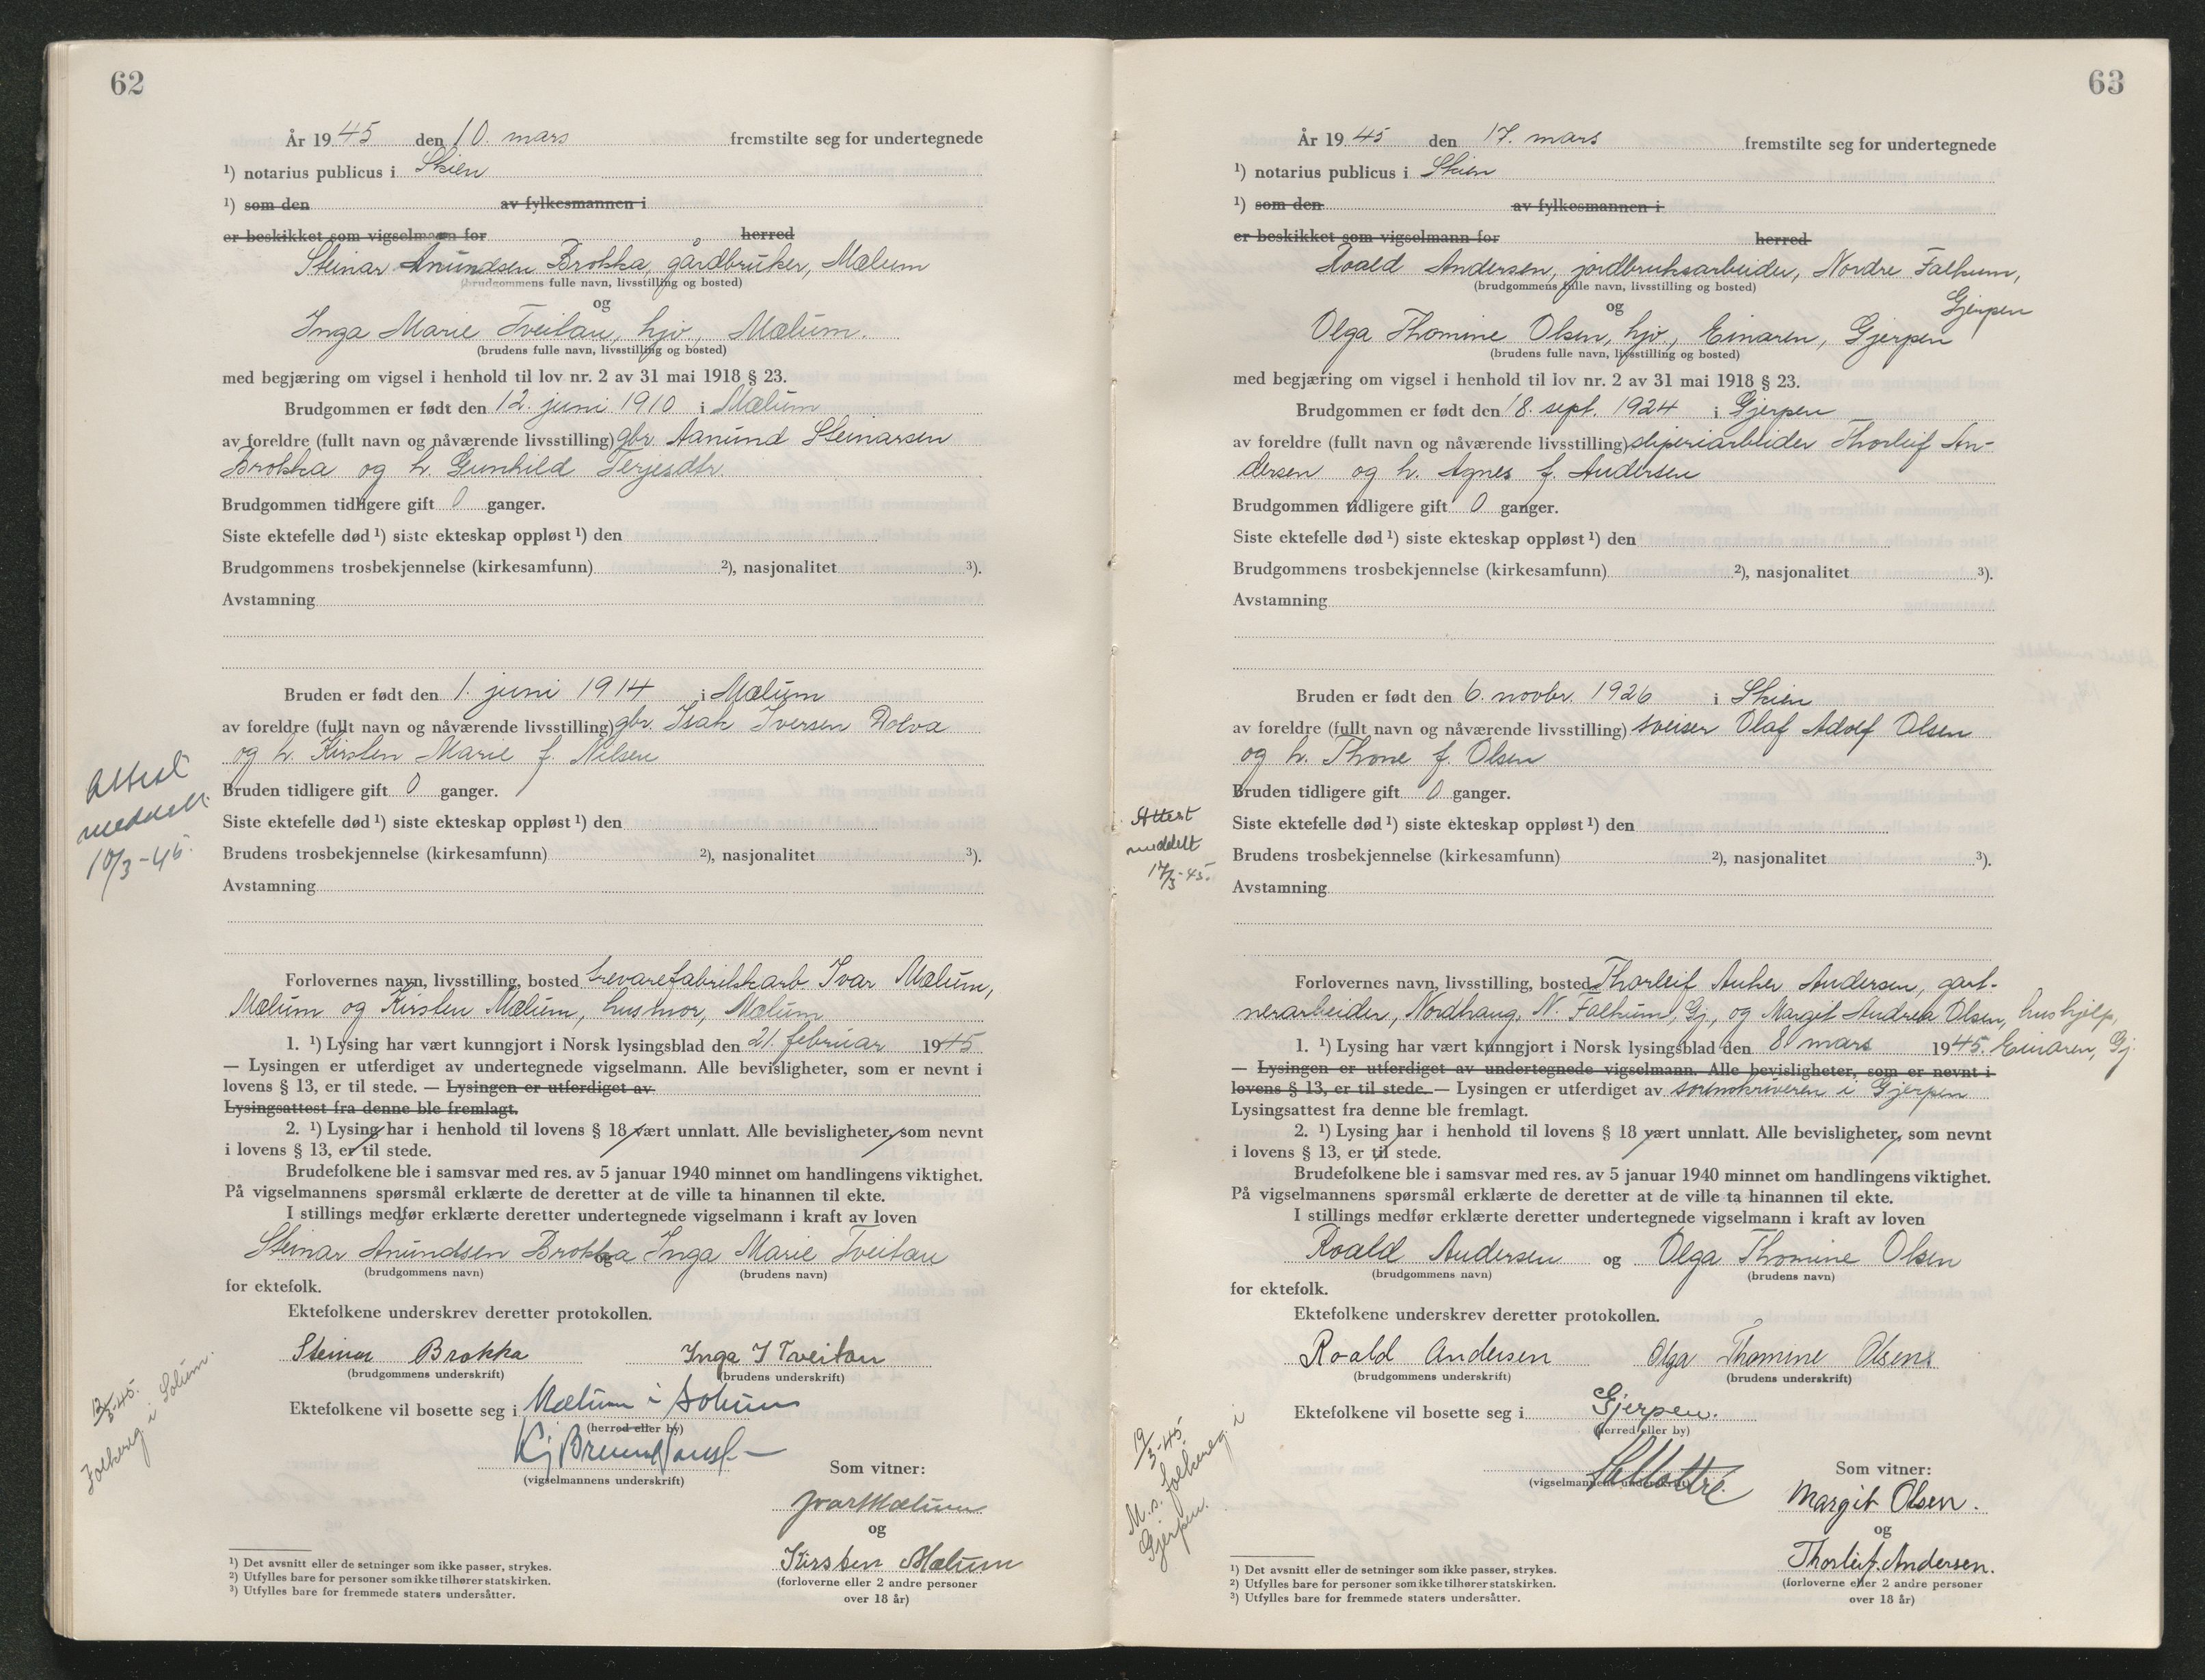 62
År 19 45 den 10. mars fremstilte seg for undertegnede
¹) notarius publicus i Skien
¹) som den av fylkesmannen i
er beskikket som vigselmann for herred
Steinar Anundsen Brokka, gårdbruker, Mælum
(brudgommens fulle navn, livsstilling og bosted)
og
Inga Marie Tveitan, hjv., Mælum.
(brudens fulle navn, livsstilling og bosted)
med begjæring om vigsel i henhold til lov nr. 2 av 31 mai 1918 § 23.
Brudgommen er født den 12. juni 1910 i Mælum
av foreldre (fullt navn og nåværende livsstilling) gbr. Aanund Steinarsen
Brokka og h. Gunhild Terjesdtr.
Brudgommen tidligere gift 0 ganger.
Siste ektefelle død ¹) siste ekteskap oppløst ¹) den
Brudgommens trosbekjennelse (kirkesamfunn) ²), nasjonalitet ³).
Avstamning
Bruden er født den 1. juni 1914 i Mælum
av foreldre (fullt navn og nåværende livsstilling) gbr. Isak Iversen Dolva
og h. Kirsten Marie f. Nilsen
Attest
meddelt
10/3-45.
Bruden tidligere gift 0 ganger.
Siste ektefelle død ¹) siste ekteskap oppløst ¹) den
Brudens trosbekjennelse (kirkesamfunn) ²), nasjonalitet ³).
Avstamning
Forlovernes navn, livsstilling, bosted trevarefabrikkarb. Ivar Mælum,
Mælum og Kirsten Mælum, husmor, Mælum
1. ¹) Lysing har vært kunngjort i Norsk lysingsblad den 21. februar 1945
— Lysingen er utferdiget av undertegnede vigselmann. Alle bevisligheter, som er nevnt i
lovens § 13, er til stede. — Lysingen er utferdiget av
Lysingsattest fra denne ble fremlagt.
2. ¹) Lysing har i henhold til lovens § 18 vært unnlatt. Alle bevisligheter, som nevnt
i lovens § 13, er til stede.
Brudefolkene ble i samsvar med res. av 5 januar 1940 minnet om handlingens viktighet.
På vigselmannens spørsmål erklærte de deretter at de ville ta hinannen til ekte.
I stillings medfør erklærte deretter undertegnede vigselmann i kraft av loven
Steinar Anundsen Brokka og Inga Marie Tveitan
(brudgommens navn) (brudens navn)
for ektefolk.
Ektefolkene underskrev deretter protokollen.
Steinar Brokka Inga I Tveitan
(brudgommens underskrift) (brudens underskrift)
12/3-45.
Folkereg i Solum.
Ektefolkene vil bosette seg i Mælum i Solum
(herred eller by)
(vigselmannens underskrift)
Som vitner:
Ivar Mælum
og
Kirsten Mælum
(forloverne eller 2 andre personer
over 18 år)
¹) Det avsnitt eller de setninger som ikke passer, strykes.
²) Utfylles bare for personer som ikke tilhører statskirken.
³) Utfylles bare for fremmede staters undersåtter.
63
År 19 45 den 17. mars fremstilte seg for undertegnede
¹) notarius publicus i Skien
¹) som den av fylkesmannen i
er beskikket som vigselmann for herred
Roald Andersen, jordbruksarbeider, Nordre Falkum,
Gjerpen
(brudgommens fulle navn, livsstilling og bosted)
og
Olga Thomine Olsen, hjv., Einaren, Gjerpen
(brudens fulle navn, livsstilling og bosted)
med begjæring om vigsel i henhold til lov nr. 2 av 31 mai 1918 § 23.
Brudgommen er født den 18. sept. 1924 i Gjerpen
av foreldre (fullt navn og nåværende livsstilling) sliperiarbeider Thorleif An-
dersen og h. Agnes f. Andersen
Brudgommen tidligere gift 0 ganger.
Siste ektefelle død ¹) siste ekteskap oppløst ¹) den
Brudgommens trosbekjennelse (kirkesamfunn) ²), nasjonalitet ³).
Avstamning
Bruden er født den 6. novbr. 1926 i Skien
av foreldre (fullt navn og nåværende livsstilling) sveiser Olaf Adolf Olsen
og h. Thone f. Olsen
Bruden tidligere gift 0 ganger.
Attest
meddelt
17/3-45.
Siste ektefelle død ¹) siste ekteskap oppløst ¹) den
Brudens trosbekjennelse (kirkesamfunn) ²), nasjonalitet ³).
Avstamning
Forlovernes navn, livsstilling, bosted Thorleif Anker Andersen, gart-
nerarbeider, Nordhaug, N. Falkum, Gj., og Margit Andrea Olsen, hushjelp,
Einaren, Gj.
1. ¹) Lysing har vært kunngjort i Norsk lysingsblad den 8. mars 1945.
— Lysingen er utferdiget av undertegnede vigselmann. Alle bevisligheter, som er nevnt i
lovens § 13, er til stede. — Lysingen er utferdiget av sorenskriveren i Gjerpen
Lysingsattest fra denne ble fremlagt.
2. ¹) Lysing har i henhold til lovens § 18 vært unnlatt. Alle bevisligheter, som nevnt
i lovens § 13, er til stede.
Brudefolkene ble i samsvar med res. av 5 januar 1940 minnet om handlingens viktighet.
På vigselmannens spørsmål erklærte de deretter at de ville ta hinannen til ekte.
I stillings medfør erklærte deretter undertegnede vigselmann i kraft av loven
Roald Andersen og Olga Thomine Olsen
(brudgommens navn) (brudens navn)
for ektefolk.
Ektefolkene underskrev deretter protokollen.
Roald Andersen Olga Thomine Olsens
(brudgommens underskrift) (brudens underskrift)
Ektefolkene vil bosette seg i Gjerpen.
(herred eller by)
19/3-45
M.s. folkereg. i
Gjerpen.
(vigselmannens underskrift)
Som vitner:
Margit Olsen.
og
Thorleif Andersen.
(forloverne eller 2 andre personer
over 18 år)
¹) Det avsnitt eller de setninger som ikke passer, strykes.
²) Utfylles bare for personer som ikke tilhører statskirken.
³) Utfylles bare for fremmede staters undersåtter.